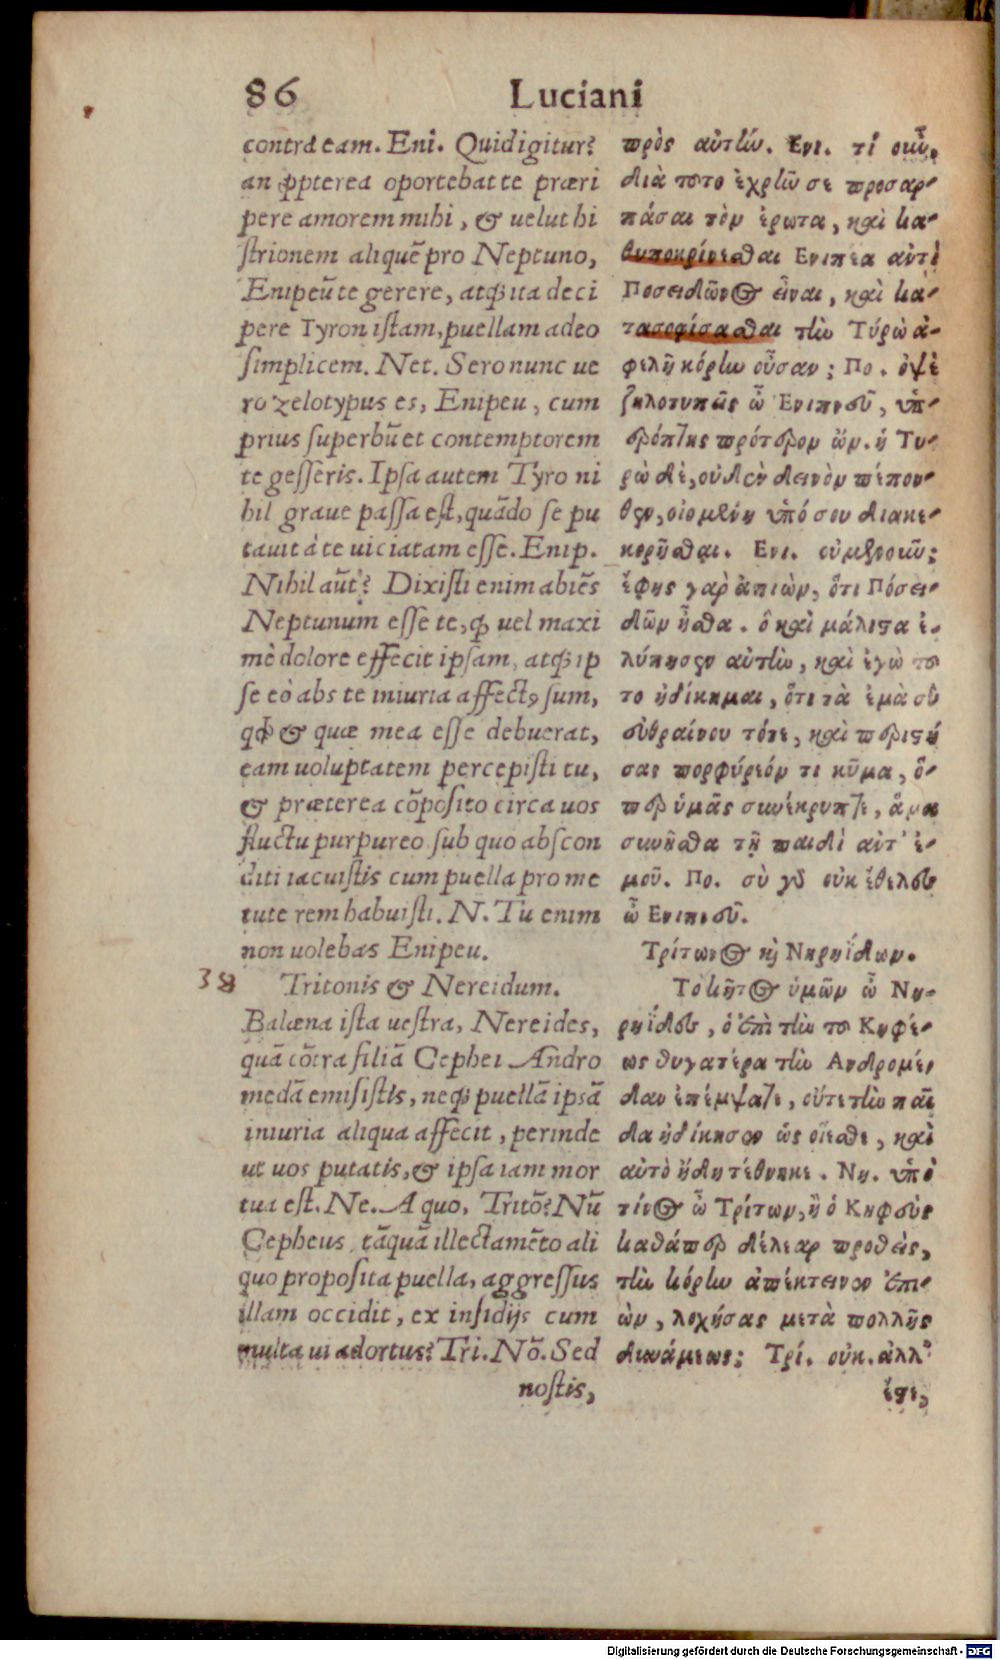 86 Luciani
contra eam. Eni. Quid igitur?
an ꝓpterea oportebat te præri
pere amorem mihi, & uelut hi
strionem aliquẽ pro Neptuno,
Enipeũ te gerere, atqꝫ ita deci
pere Tyron istam, puellam adeo
simplicem. Net. Sero nunc ue
ro zelotypus es, Enipeu, cum
prius superbũ et contemptorem
te gesseris. Ipsa autem Tyro ni
hil graue passa est, quãdo se pu
tauit à te uiciatam esse. Enip.
Nihil aũt? Dixisti enim abiẽs
Neptunum esse te, qꝫ uel maxi
mè dolore effecit ipsam, atqꝫ ip
se eò abs te iniuria affectꝰ sum,
qđ & quæ mea esse debuerat,
eam uoluptatem percepisti tu,
& præterea cõposito circa uos
fluctu purpureo sub quo abscon
diti iacuistis cum puella pro me
tute rem habuisti. N. Tu enim
non uolebas Enipeu.
38 Tritonis & Nereidum.
Balæna ista uestra, Nereides,
quã cõtra filiã Cephei Andro
medã emisistis, neqꝫ puellã ipsã
iniuria aliqua affecit, perinde
ut uos putatis, & ipsa iam mor
tua est. Ne. A quo, Tritõ? Nũ
Cepheus tãquã illectamẽto ali
quo proposita puella, aggressus
illam occidit, ex insidijs cum
multa ui adortus? Tri. Nõ. Sed
nostis,
πρὸς αὐτήν. Ενι. τί οὖν,
διὰ τοῦτο ἐχρῆν σε προσαρ-
πάσαι τὸν ἔρωτα, καὶ κα-
θυποκρίνεσθαι Ενιπέα ἀντὶ
Ποσειδῶνος εἶναι, καὶ κα-
τασοφίσασθαι τὴν Τύρὼ ἀ-
φελῆ κόρην οὖσαν; Πο. ὀψὲ
ζηλοτυπεῖς ὦ Ἐνιπεῦ, ὑπ-
ερόπτης πρότερον ὤν. ἡ Τυ-
ρὼ δὲ, οὐδὲν δεινὸν πέπον-
θεν, οἰομένη ὑπό σου διακε-
κορῆσθαι. Ενι. οὐμενοῦν;
ἔφης γὰρ ἀπιὼν, ὅτι Πόσει-
δῶν ἦσθα. ὃ καὶ μάλιστα ἐ-
λύπησεν αὐτὴν, καὶ ἐγὼ τοῦ
το ἠδίκημαι, ὅτι τὰ ἐμὰ σὺ
εὐφραίνου τότε, καὶ περιστή
σας πορφύρεόν τι κῦμα, ὅ-
περ ὑμᾶς συνέκρυπτε, ἅμα
συνῆσθα τῇ παιδὶ ἀντ' ἐ-
μοῦ. Πο. σὺ γὰρ οὐκ ἤθελες
ὦ Ενιπεῦ.
Τρίτωνος καὶ Νηρηΐδων.
Τὸ κῆτος ὑμῶν ὦ Νη-
ρηΐδες, ὃ ἐπὶ τὴν τοῦ Κηφέ-
ως θυγατέρα τὴν Ανδρομέ-
δαν ἐπέμψατε, οὔτε τὴν παῖ
δα ἠδίκησεν ὡς οἴεσθε, καὶ
αὐτὸ ἤδη τέθνηκε. Νη. ὑπὸ
τίνος ὦ Τρίτων, ἢ ὁ Κηφεὺς
καθάπερ δέλεαρ προθεὶς,
τὴν κόρην ἀπέκτεινεν ἐπι-
ὼν, λοχήσας μετὰ πολλῆς
δυνάμεως; Τρί. οὐκ. ἀλλ'
ἴστε,
Digitalisierung gefördert durch die Deutsche Forschungsgemeinschaft - DFG